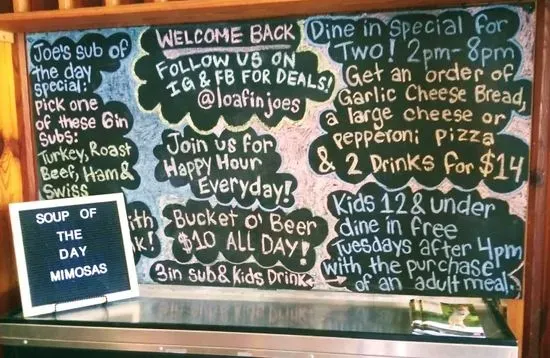 Joe's sub of
the day
special:
pick one
of these 6in
subs:
Turkey, Roast
Beef, Ham &
Swiss
with
k!
WELCOME BACK
FOLLOW US ON
IG & FB FOR DEALS!
@loafinjoes
Join us for
Happy Hour
Everyday!
Bucket O' Beer
$10 ALL DAY!
3in sub & Kids Drink
Dine in special for
Two! 2pm-8pm
Get an order of
Garlic Cheese Bread,
a large cheese or
pepperoni pizza
& 2 Drinks for $14
Kids 12 & under
dine in free
Tuesdays after 4pm
with the purchase
of an adult meal.
SOUP OF
THE
DAY
MIMOSAS